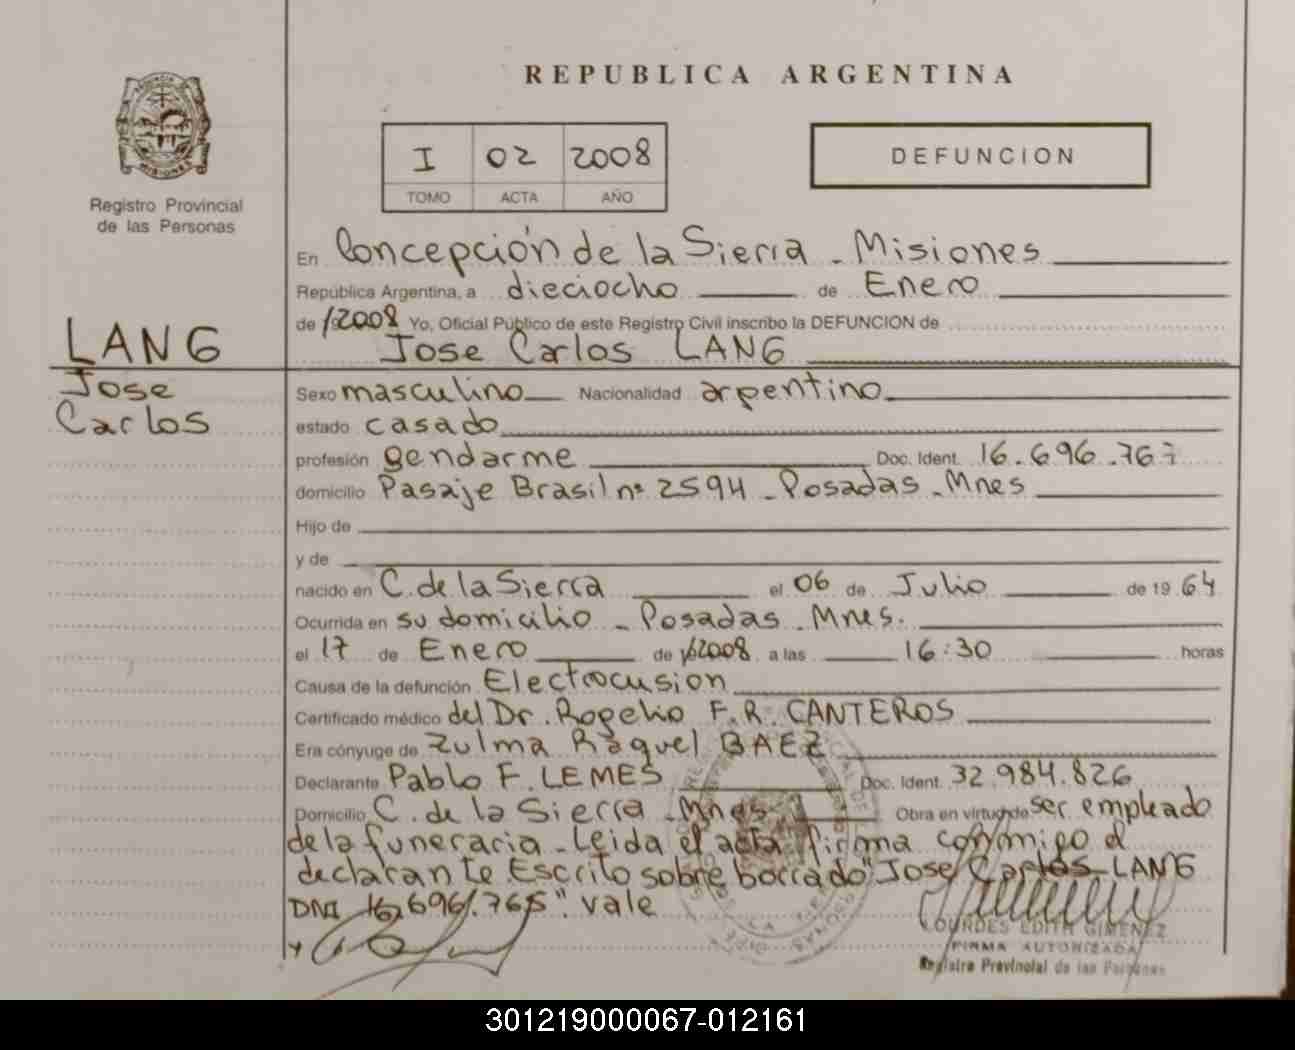 REPUBLICA ARGENTINA
I 02 2008
TOMO ACTA AÑO
DEFUNCION
MISIONES
Registro Provincial
de las Personas
LANG
Jose
Carlos
En Concepción de la Sierra - Misiones
República Argentina, a dieciocho de Enero
de 2008 Yo, Oficial Público de este Registro Civil inscribo la DEFUNCION de
Jose Carlos LANG
Sexo masculino Nacionalidad argentino
estado casado
profesión gendarme Doc. Ident. 16.696.767
domicilio Pasaje Brasil nº 2594 - Posadas - Mnes
Hijo de
y de
nacido en C. de la Sierra el 06 de Julio de 1964
Ocurrida en su domicilio - Posadas - Mnes.
el 17 de Enero de 2008 a las 16:30 horas
Causa de la defunción Electrocusion
Certificado médico del Dr. Rogelio F.R. CANTEROS
Era cónyuge de Zulma Raquel BAEZ
Declarante Pablo F. LEMES Doc. Ident. 32.984.826
Domicilio C. de la Sierra - Mnes Obra en virtud de ser empleado
de la funeraria - Leida el acta firma conmigo el
declarante Escrito sobre borrado "Jose Carlos LANG
DNI 16.696.765". vale
LOURDES EDITH GIMENEZ
FIRMA AUTORIZADA
Registro Provincial de las Personas
301219000067-012161